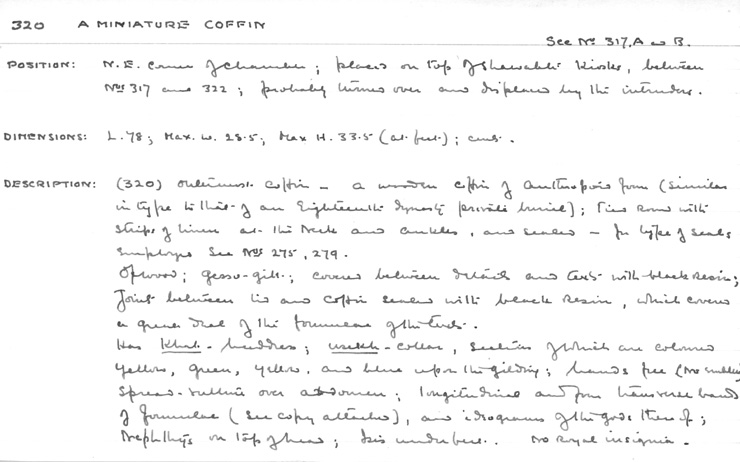 320 A MINIATURE COFFIN
See Nos 317, A & B.
POSITION: N.E. corner of chamber; placed on top of Shawabti Kiosks, between
Nos 317 and 322; probably turned over and displaced by the intruders.
DIMENSIONS: L. 78; Max. W. 28.5; Max H. 33.5 (at feet); cms.
DESCRIPTION: (320) outermost coffin – a wooden coffin of anthropoid form (similar
in type to that of an Eighteenth dynasty private burial); Tied round with
strips of linen at the neck and ankles, and sealed – for type of seals
employed see Nos 275, 279.
Of wood; gesso-gilt; covered between details and text with black resin;
Joint between lid and coffin sealed with black resin, which covered
a great deal of the formulae of the texts.
Has Khat-headdress; usekh-collar, sections of which are coloured
yellow, green, yellow, and blue upon the gilding; hands free (no emblems)
Spread-vulture over abdomen; longitudinal and four transverse bands
of formulae (see copy attached), and ideograms of the gods thereof;
Nephthys on top of head; Isis under feet. No Royal insignia.